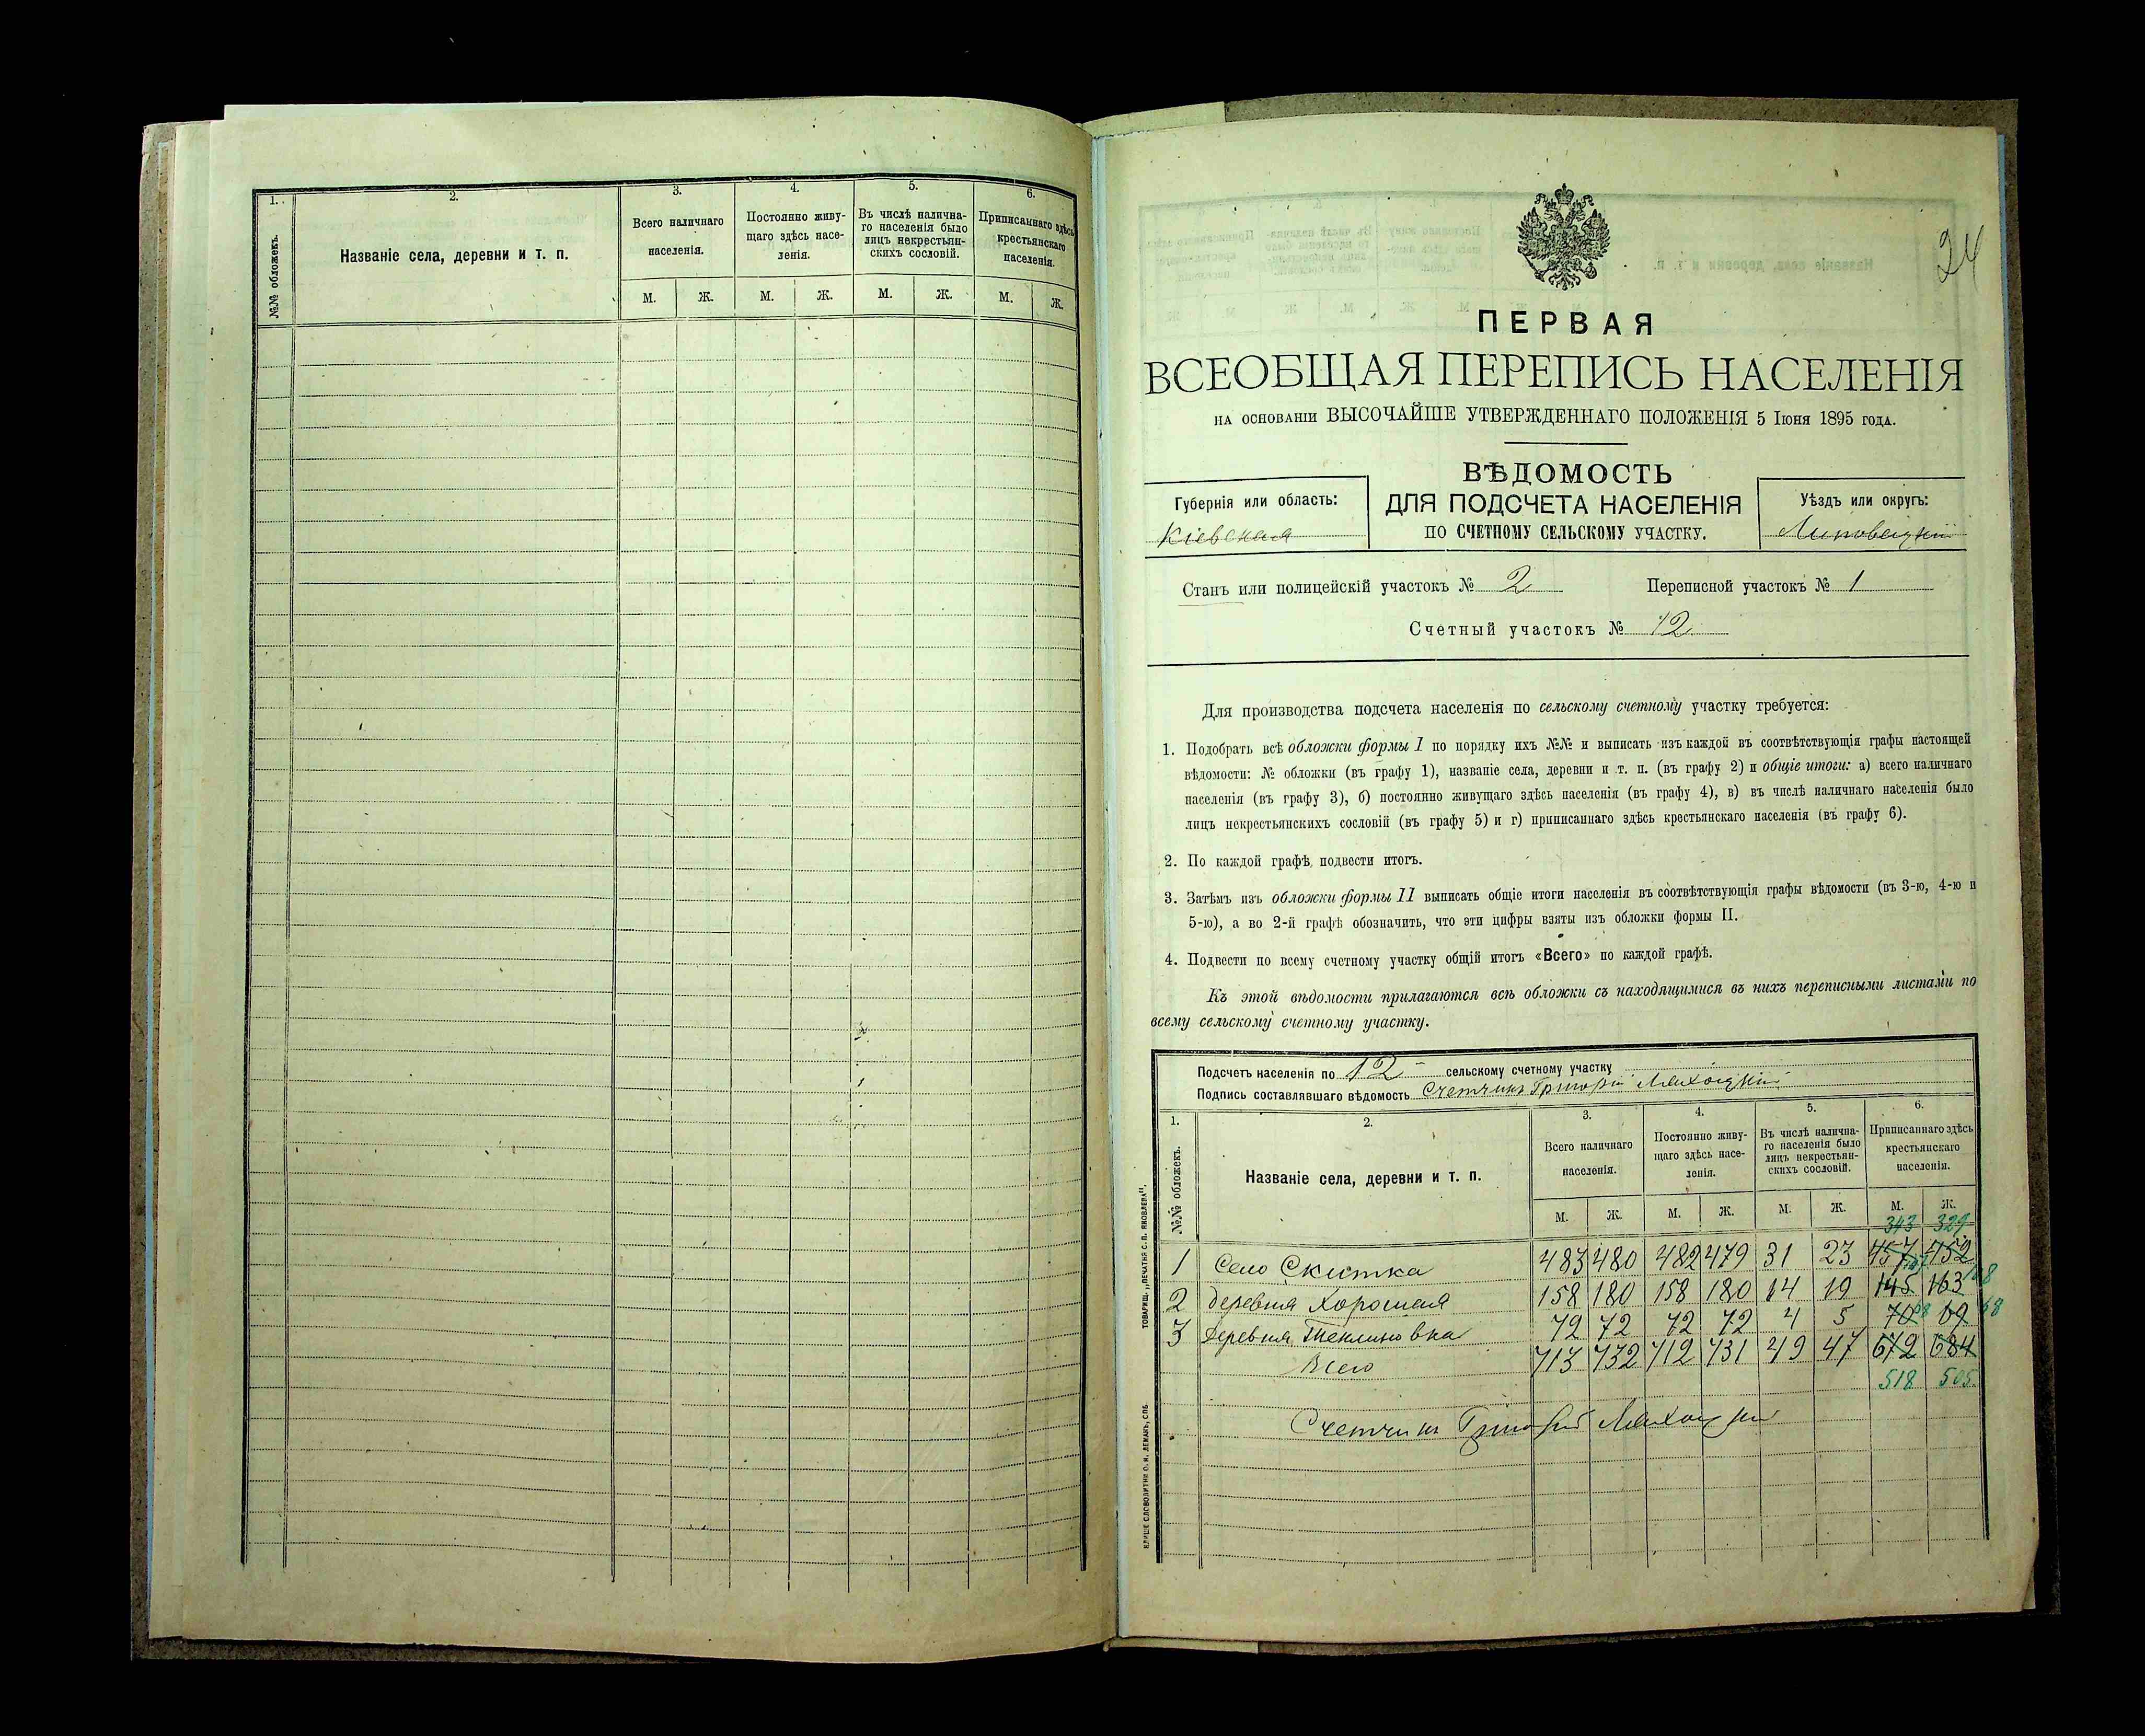 1.
2.
3.
4.
5.
6.
№№ обложекъ.
Названіе села, деревни и т. п.
Всего наличнаго
населенія.
Постоянно живу-
щаго здѣсь насе-
ленія.
Въ числѣ налична-
го населенія было
лицъ некрестьян-
скихъ сословій.
Приписаннаго здѣсь
крестьянскаго
населенія.
М. Ж. М. Ж. М. Ж. М. Ж.
24
ПЕРВАЯ
ВСЕОБЩАЯ ПЕРЕПИСЬ НАСЕЛЕНІЯ
НА ОСНОВАНІИ ВЫСОЧАЙШЕ УТВЕРЖДЕННАГО ПОЛОЖЕНІЯ 5 Іюня 1895 года.
ВѢДОМОСТЬ
ДЛЯ ПОДСЧЕТА НАСЕЛЕНІЯ
ПО СЧЕТНОМУ СЕЛЬСКОМУ УЧАСТКУ.
Губернія или область:
Кіевская
Уѣздъ или округъ:
Липовецкій
Станъ или полицейскій участокъ № 2 Переписной участокъ № 1
Счетный участокъ № 12
Для производства подсчета населенія по сельскому счетному участку требуется:
1. Подобрать всѣ обложки формы I по порядку ихъ №№ и выписать изъ каждой въ соотвѣтствующія графы настоящей
вѣдомости: № обложки (въ графу 1), названіе села, деревни и т. п. (въ графу 2) и общіе итоги: а) всего наличнаго
населенія (въ графу 3), б) постоянно живущаго здѣсь населенія (въ графу 4), в) въ числѣ наличнаго населенія было
лицъ некрестьянскихъ сословій (въ графу 5) и г) приписаннаго здѣсь крестьянскаго населенія (въ графу 6).
2. По каждой графѣ подвести итогъ.
3. Затѣмъ изъ обложки формы II выписать общіе итоги населенія въ соотвѣтствующія графы вѣдомости (въ 3-ю, 4-ю и
5-ю), а во 2-й графѣ обозначить, что эти цифры взяты изъ обложки формы II.
4. Подвести по всему счетному участку общій итогъ «Всего» по каждой графѣ.
Къ этой вѣдомости прилагаются всѣ обложки съ находящимися въ нихъ переписными листами по
всему сельскому счетному участку.
Подсчетъ населенія по 12 сельскому счетному участку
Подпись составлявшаго вѣдомость Счетчикъ Григорій
1.
2.
3.
4.
5.
6.
№№ обложекъ.
Названіе села, деревни и т. п.
Всего наличнаго
населенія.
Постоянно живу-
щаго здѣсь насе-
ленія.
Въ числѣ налична-
го населенія было
лицъ некрестьян-
скихъ сословій.
Приписаннаго здѣсь
крестьянскаго
населенія.
М. Ж. М. Ж. М. Ж. М. Ж.
343 329
1 Село Скитка 483 480 482 479 31 23 457 452
2 Деревня Хорошая 158 180 158 180 14 19 145 163
3 Деревня Теклиновка 72 72 72 72 4 5 70 69 68
Всего 713 732 712 731 49 47 672 684
518 505
Счетчикъ Григорій
ТОВАРИЩ. „ПЕЧАТНЯ С. П. ЯКОВЛЕВА“.